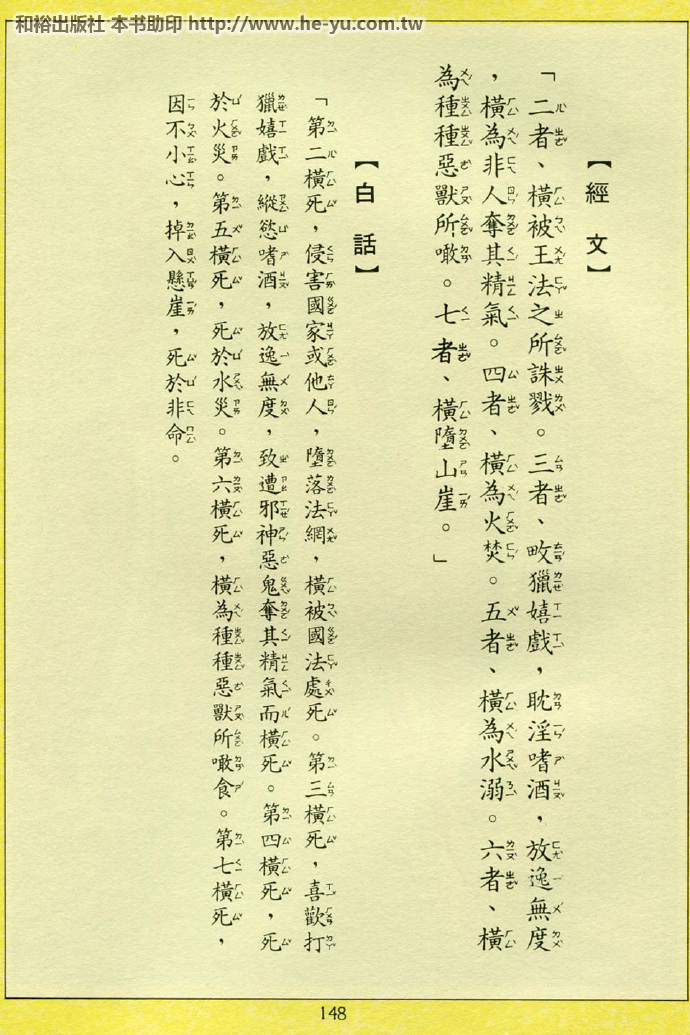 和裕出版社 本书助印 http://www.he-yu.com.tw
【經文】
「二者、橫被王法之所誅戮。三者、畋獵嬉戲，耽淫嗜酒，放逸無度
，橫為非人奪其精氣。四者、橫為火焚。五者、橫為水溺。六者、橫
為種種惡獸所噉。七者、橫墮山崖。」
【白話】
「第二橫死，侵害國家或他人，墮落法網，橫被國法處死。第三橫死，喜歡打
獵嬉戲，縱慾嗜酒，放逸無度，致遭邪神惡鬼奪其精氣而橫死。第四橫死，死
於火災。第五橫死，死於水災。第六橫死，橫為種種惡獸所噉食。第七橫死，
因不小心，掉入懸崖，死於非命。
148